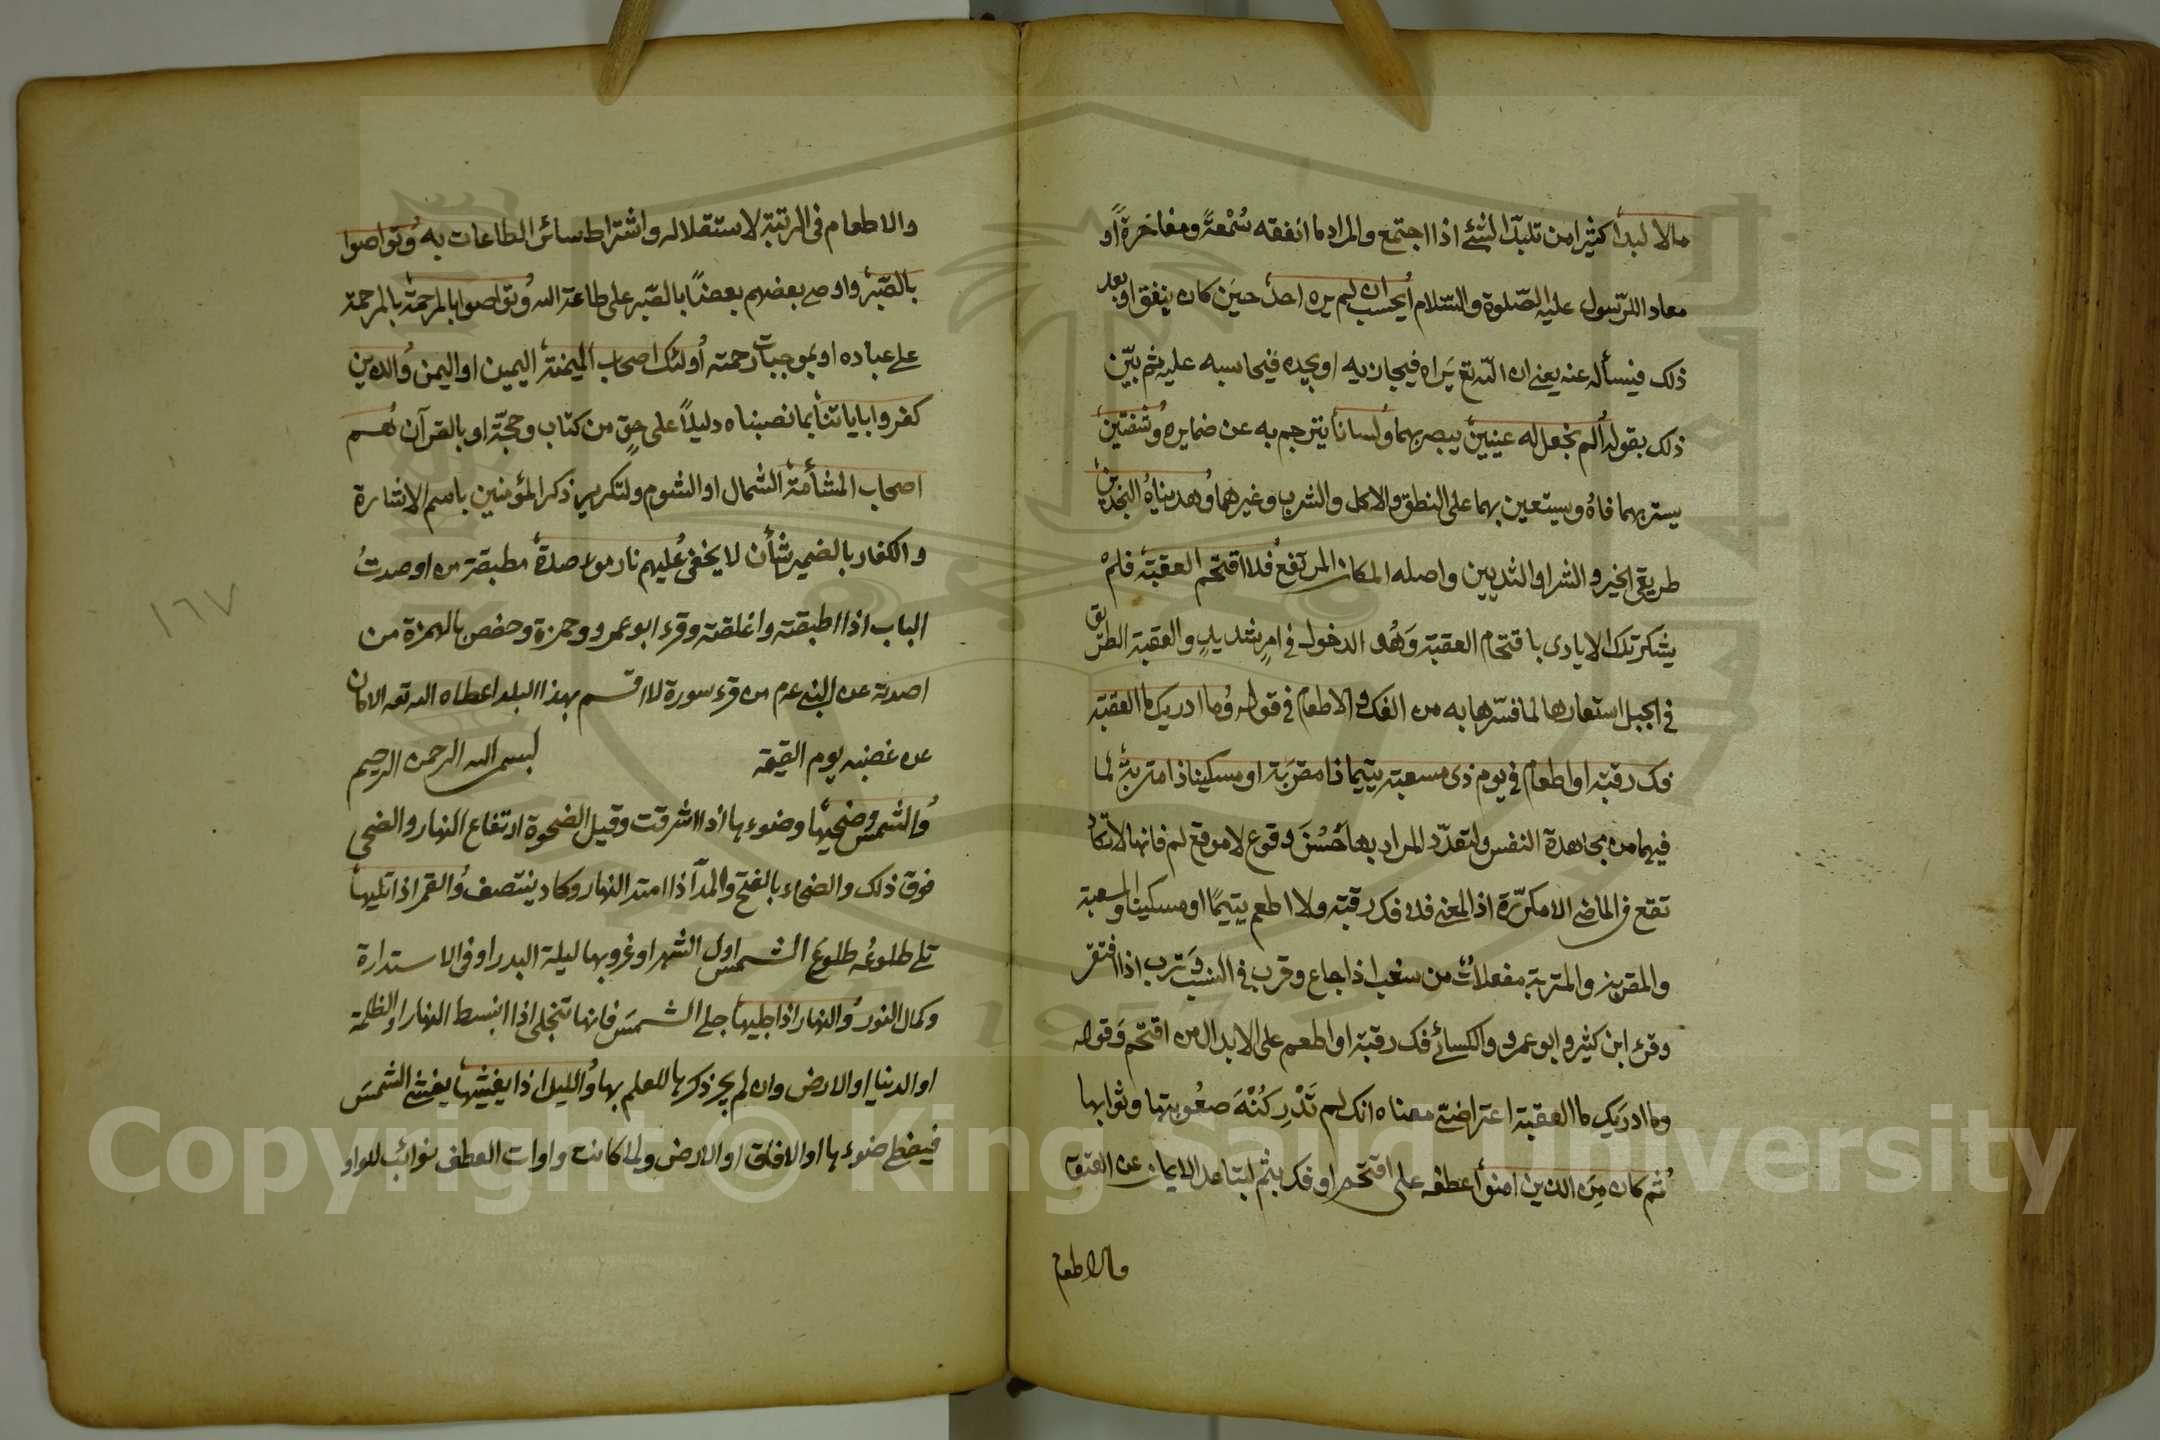 مالا لبدا كثيرا من تلبد الشئ اذا اجتمع والمراد ما انفقه سُمْعَةً ومفاخرةً او
معاداللرّسول عليه الصّلوة والسّلام ايحسب ان لم يره احد حينَ كان ينفق او بعد
ذلك فيسأله عنه يعنى ان اللّه تع يَراه فيجازيه او يجده فيحاسبه عليه ثم بيّن
ذلك بقوله الم نجعل له عينين يبصر بهما ولسانا يترجم به عن ضمايره وشفتين
يستر بهما فاه ويستعين بهما على النطق والاكل والشرب وغيرها وهديناه النجدين
طريقى الخير والشر او الثديين واصله المكان المرتفع فلا اقتحم العقبة فلم
يشكر تلك الايادى باقتحام العقبة وَهُو الدخول فى امرٍ شديدٍ والعقبة الطريق
فى الجبل استعارها لما فسّرها به من الفك والاطعام فى قوله وما ادريك ما العقبة
فك رقبة او اطعام فى يوم ذى مسغبة يتيما ذا مقرَبَة او مسكينا ذا متربة لما
فيهما من مجاهدة النفس ولتعدّد المراد بها حَسُنَ وقوع لا موقع لم فانها لا تكاد
تقع فى الماضى الا مكرّرة اذ المعنى فلا فك رقبة ولا اطعم يتيمًا او مسكينا والمسغبة
والمقربة والمتربة مفعلات من سغب اذا جاع وقرب فى النسب وتَرب اذا افتقر
وقرئ ابن كثير وابو عمرو والكسائى فك رقبة او اطعم على الابدال من اقتحم وَقوله
وما ادريك ما العقبة اعتراض معناه انك لم تَدْرِ كُنْهَ صعُوبتها وثوابها
ثم كان مِن الذين امنوا عطف على اقتحم او فك بثم لتباعد الايمان عن العتق
والاطعام
والاطعام فى الرتبة لاستقلاله واشتراط سائر الطاعات به وتواصوا
بالصّبر واوصى بعضهم بعضًا بالصّبر على طاعة اللّه وتواصوا بالمرحمة بالمرحمة
على عباده او بموجبات رحمته اولئك اصحاب الميمنة اليمين او اليمن والذين
كفروا باياتنا بما نصبناه دليلًا على حقٍ من كتاب وحجّة او بالقرآن هُم
اصحاب المشأمة الشمال او الشوم ولتكرير ذكر المؤمنين باسم الاشارة
والكفار بالضمير شأن لا يخفى عليهم نار موصدة مطبقة من اوصدتُ
الباب اذا اطبقته واغلقته وقرء ابو عمرو وحمزة وحفص بالهمزة من
اصدته عن النبى عم من قرء سورة لا اقسم بهذا البلد اعطاه اللّه تع الامان
عن غضبه يوم القيمة بسم اللّه الرحمن الرحيم
والشمس وضحيها وضوءها اذا اشرقت وقيل الضحوة ارتفاع النهار والضحى
فوق ذلك والضحاء بالفتح والمدّ اذا امتد النهار وكاد ينتصف والقمر اذا تليها
تلى طلوعُه طلوعَ الشمس اول الشهر او غروبها ليلة البدر او فى الاستدارة
وكمال النور والنهار اذا جليها جلى الشمسَ فانها تتجلى اذا انبسط النهار او الظلمة
او الدنيا او الارض وان لم يجر ذكرها للعلم بها والليل اذا يغشيها يغشى الشمسَ
فيغطى ضوءها او الافاق او الارض ولما كانت واوات العطف نوائب للواو
١٦٧
1957
Copyright © King Saud University